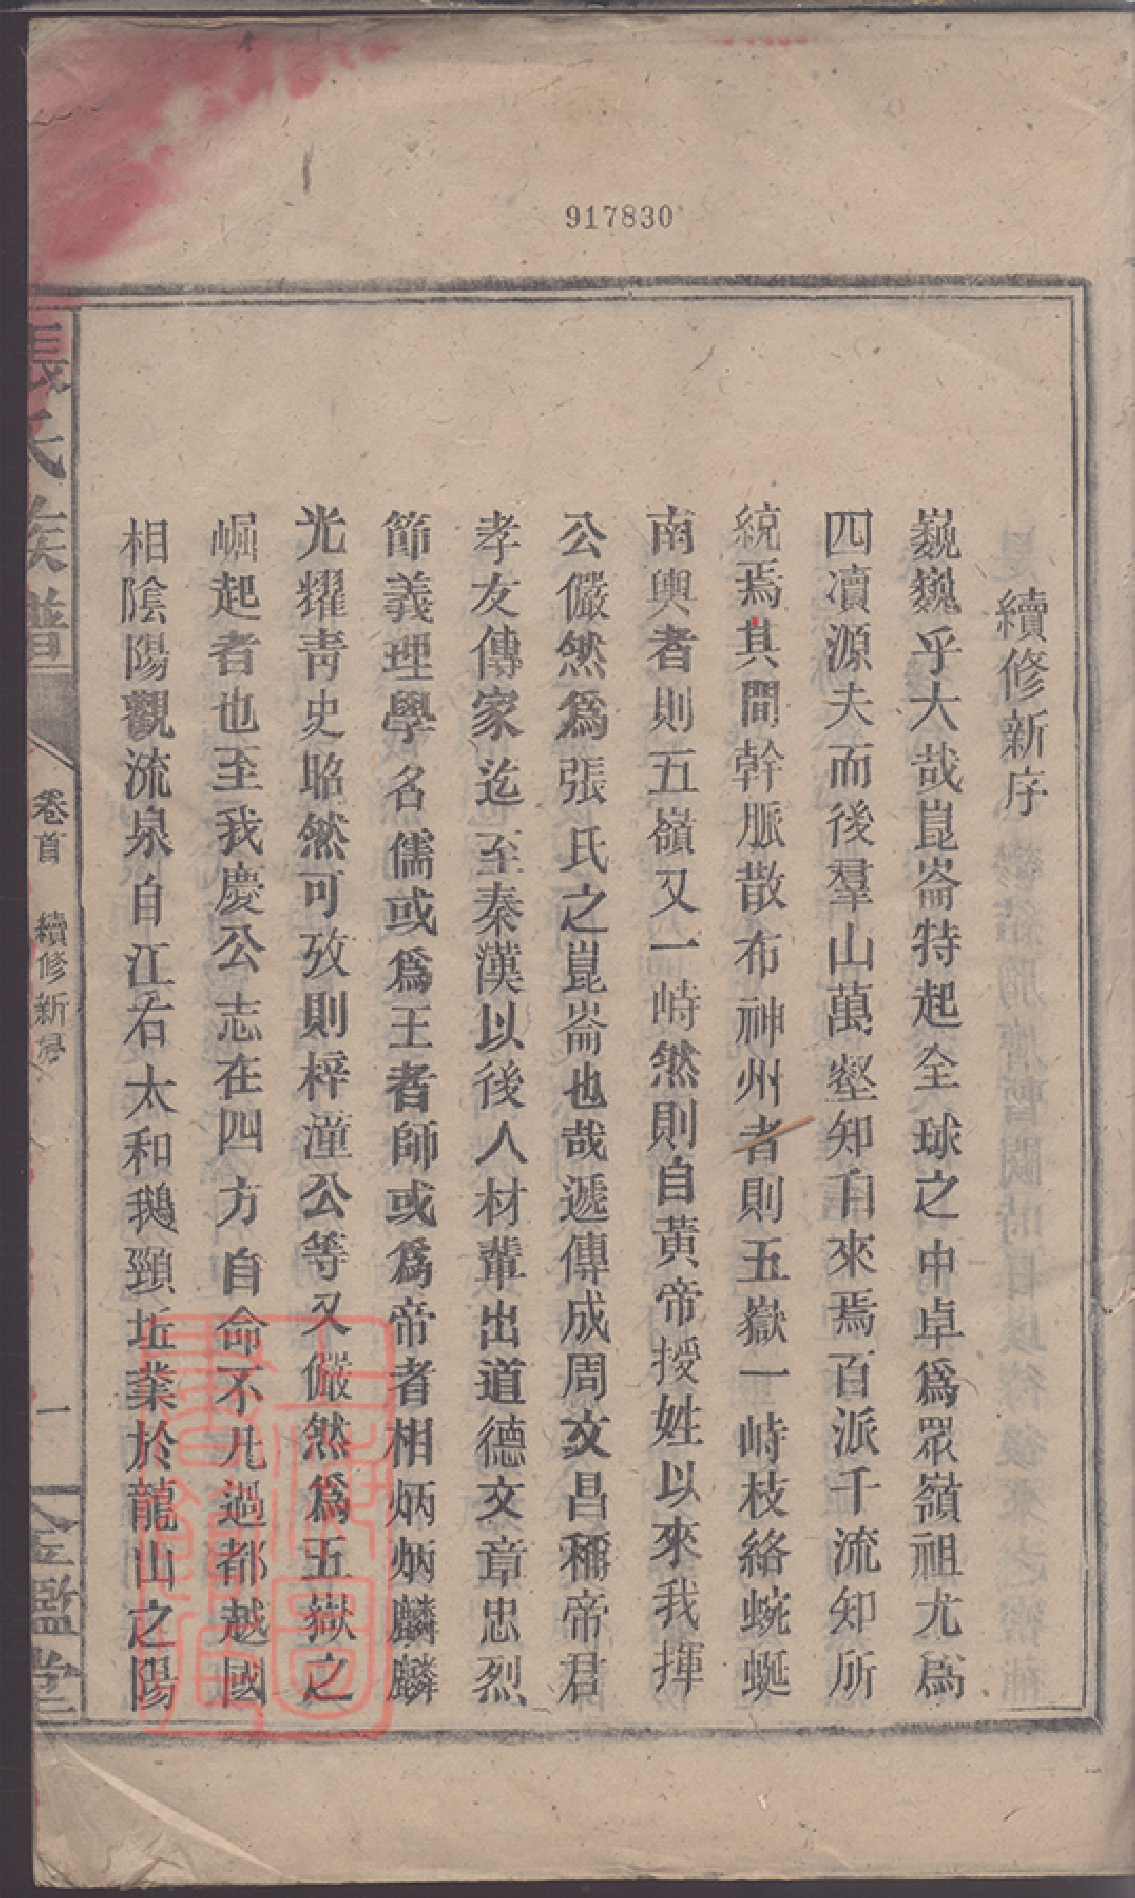 917830
續修新序
巍巍乎大哉崑崙特起全球之中卓爲眾嶺祖尤爲
四凟源夫而後羣山萬壑知自來焉百派千流知所
統焉其間幹脈散布神州者則五嶽一峙枝絡蜿蜒
南輿者則五嶺又一峙然則自黃帝授姓以來我揮
公儼然爲張氏之崑崙也哉遞傳成周文昌稱帝君
孝友傳家迄至秦漢以後人材輩出道德文章忠烈
節義理學名儒或爲王者師或爲帝者相炳炳麟麟
光耀靑史昭然可攷則梓潼公等又儼然爲五嶽之
崛起者也至我慶公志在四方自命不凡過都越國
相陰陽觀流泉自江右太和鵝頸坵業於龍山之陽
張氏族譜
卷首
續修新序
一
金鑑堂
上海圖書館藏